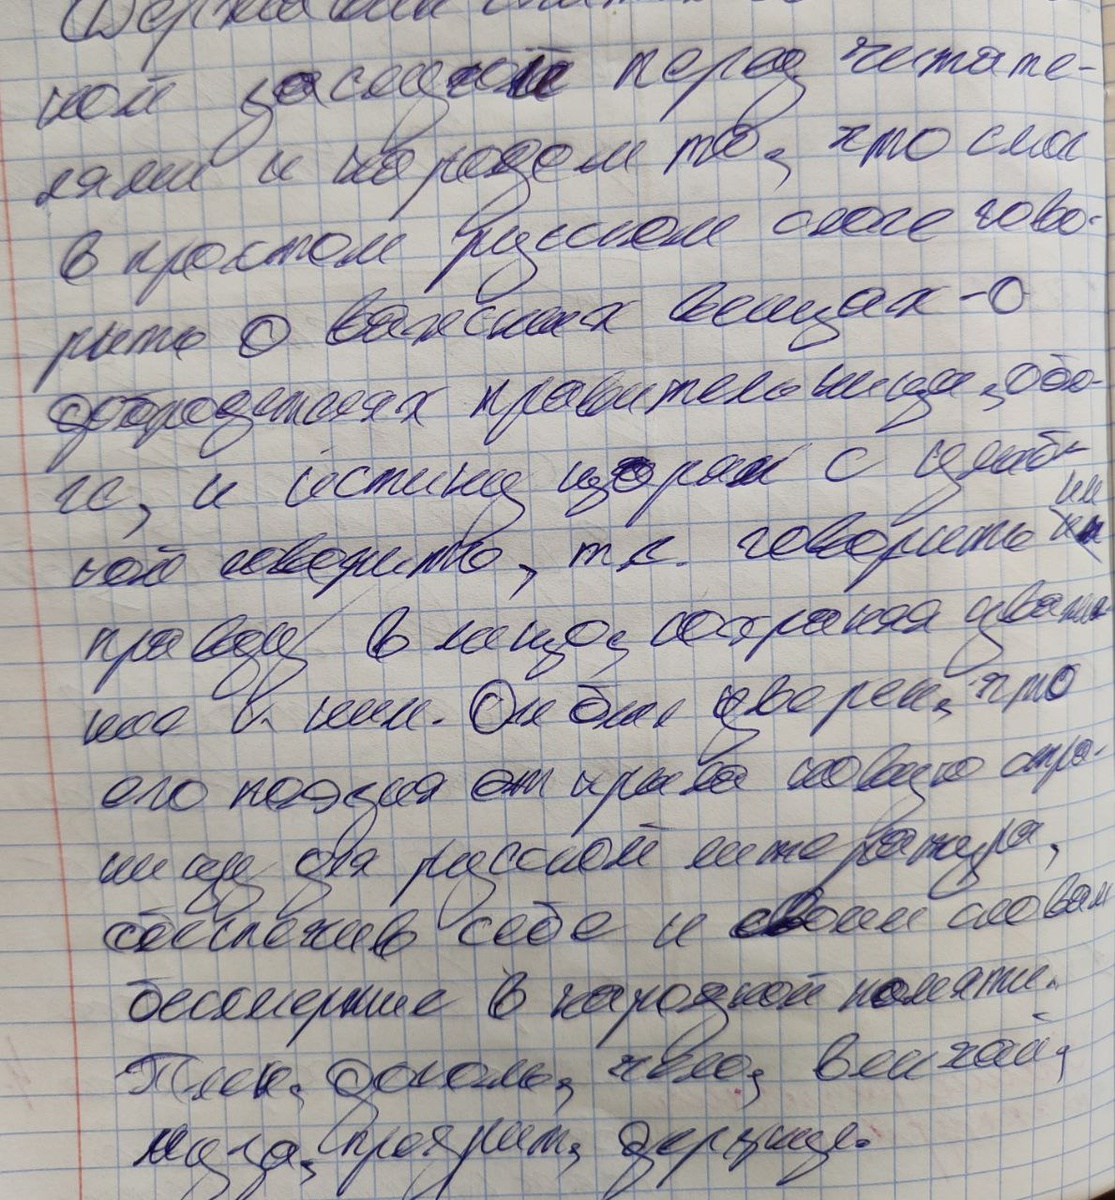 Державин считал
ной заслугой перед читате-
лями и народом то, что смог
в простом русском слоге гово-
рить о важных вещах - о
добродетелях правительницы, о бо-
ге, и истину царям с улыб-
кой говорить, т.к. говорить им
правду в лицо, сохраняя уваже
ние к ним. Он был уверен, что
его поэзия открыла новую стра-
ницу для русской литературы,
обеспечив себе и своим словам
бессмертие в народной памяти.
Тлен, доколь, чело, венчай,
муза, презрит, дерзнул.